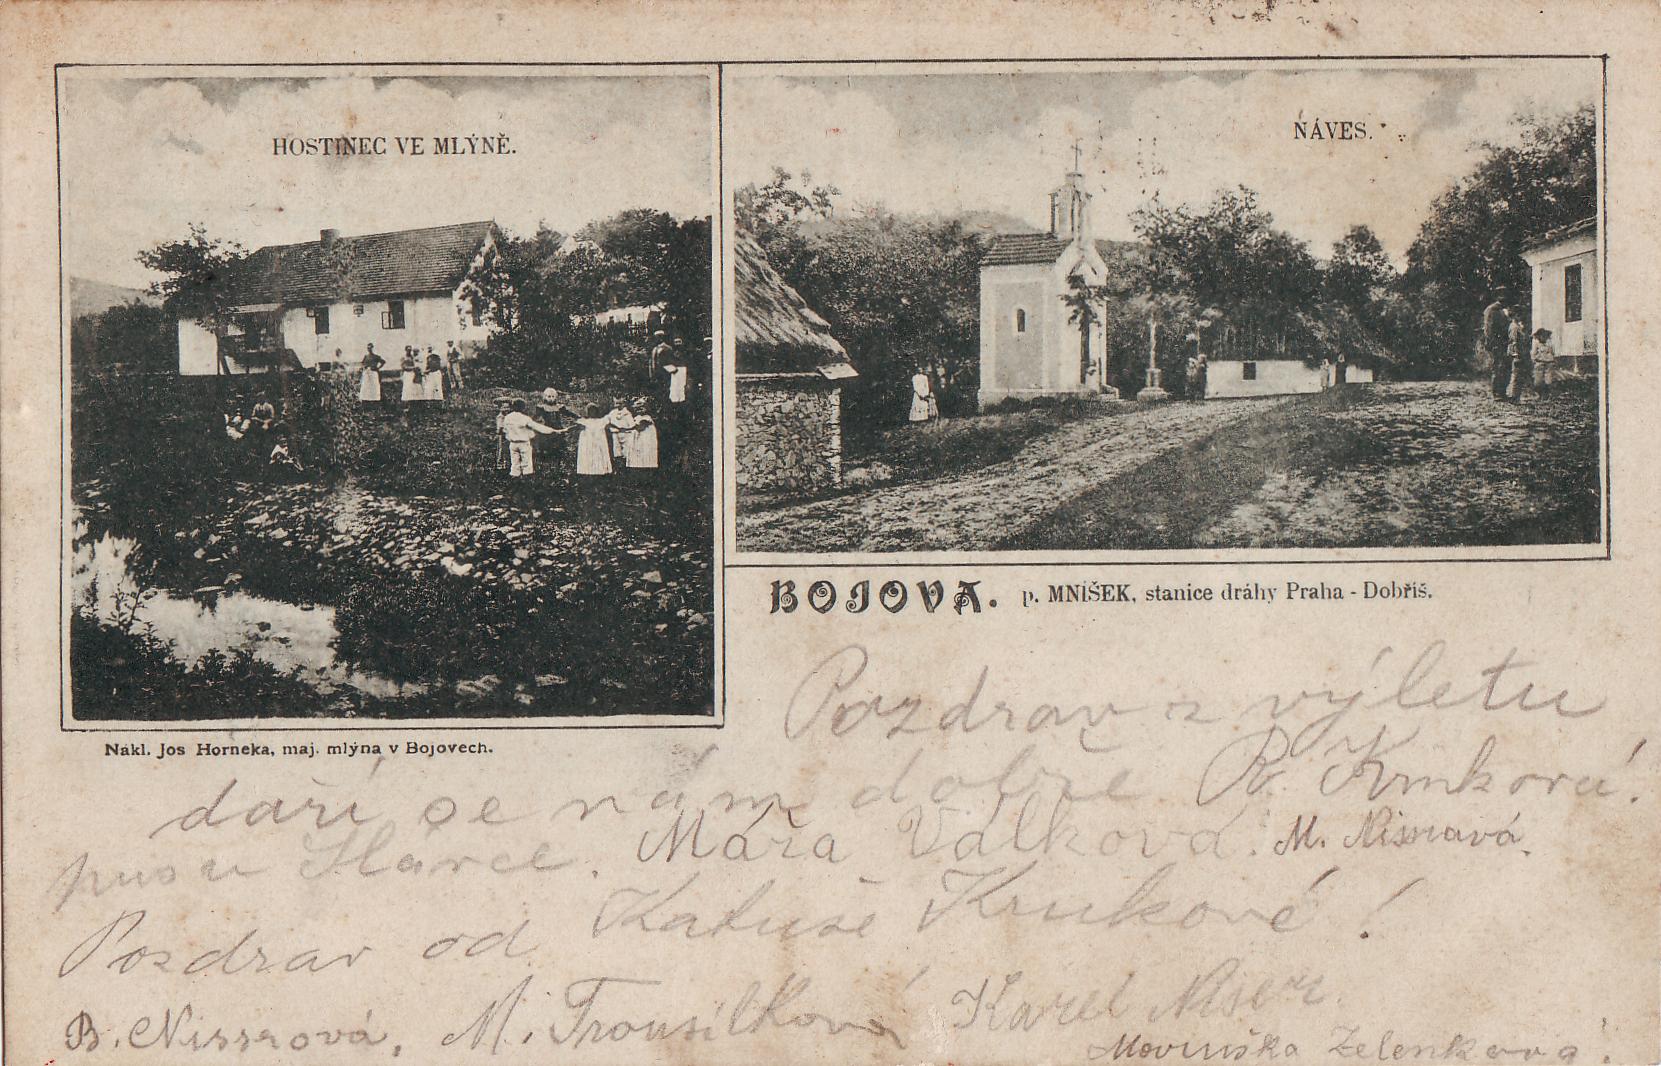 HOSTINEC VE MLÝNĚ.
NÁVES.
BOJOVA. p. MNÍŠEK, stanice dráhy Praha - Dobříš.
Nákl. Jos Horneka, maj. mlýna v Bojovech.
Pozdrav z výletu
daří se nám dobře R. Krnková.
Máňa Válková. M.
Pozdrav od Katuše Krukové!
B. Nissrová, M. Trousílková Karel
Zelenková.